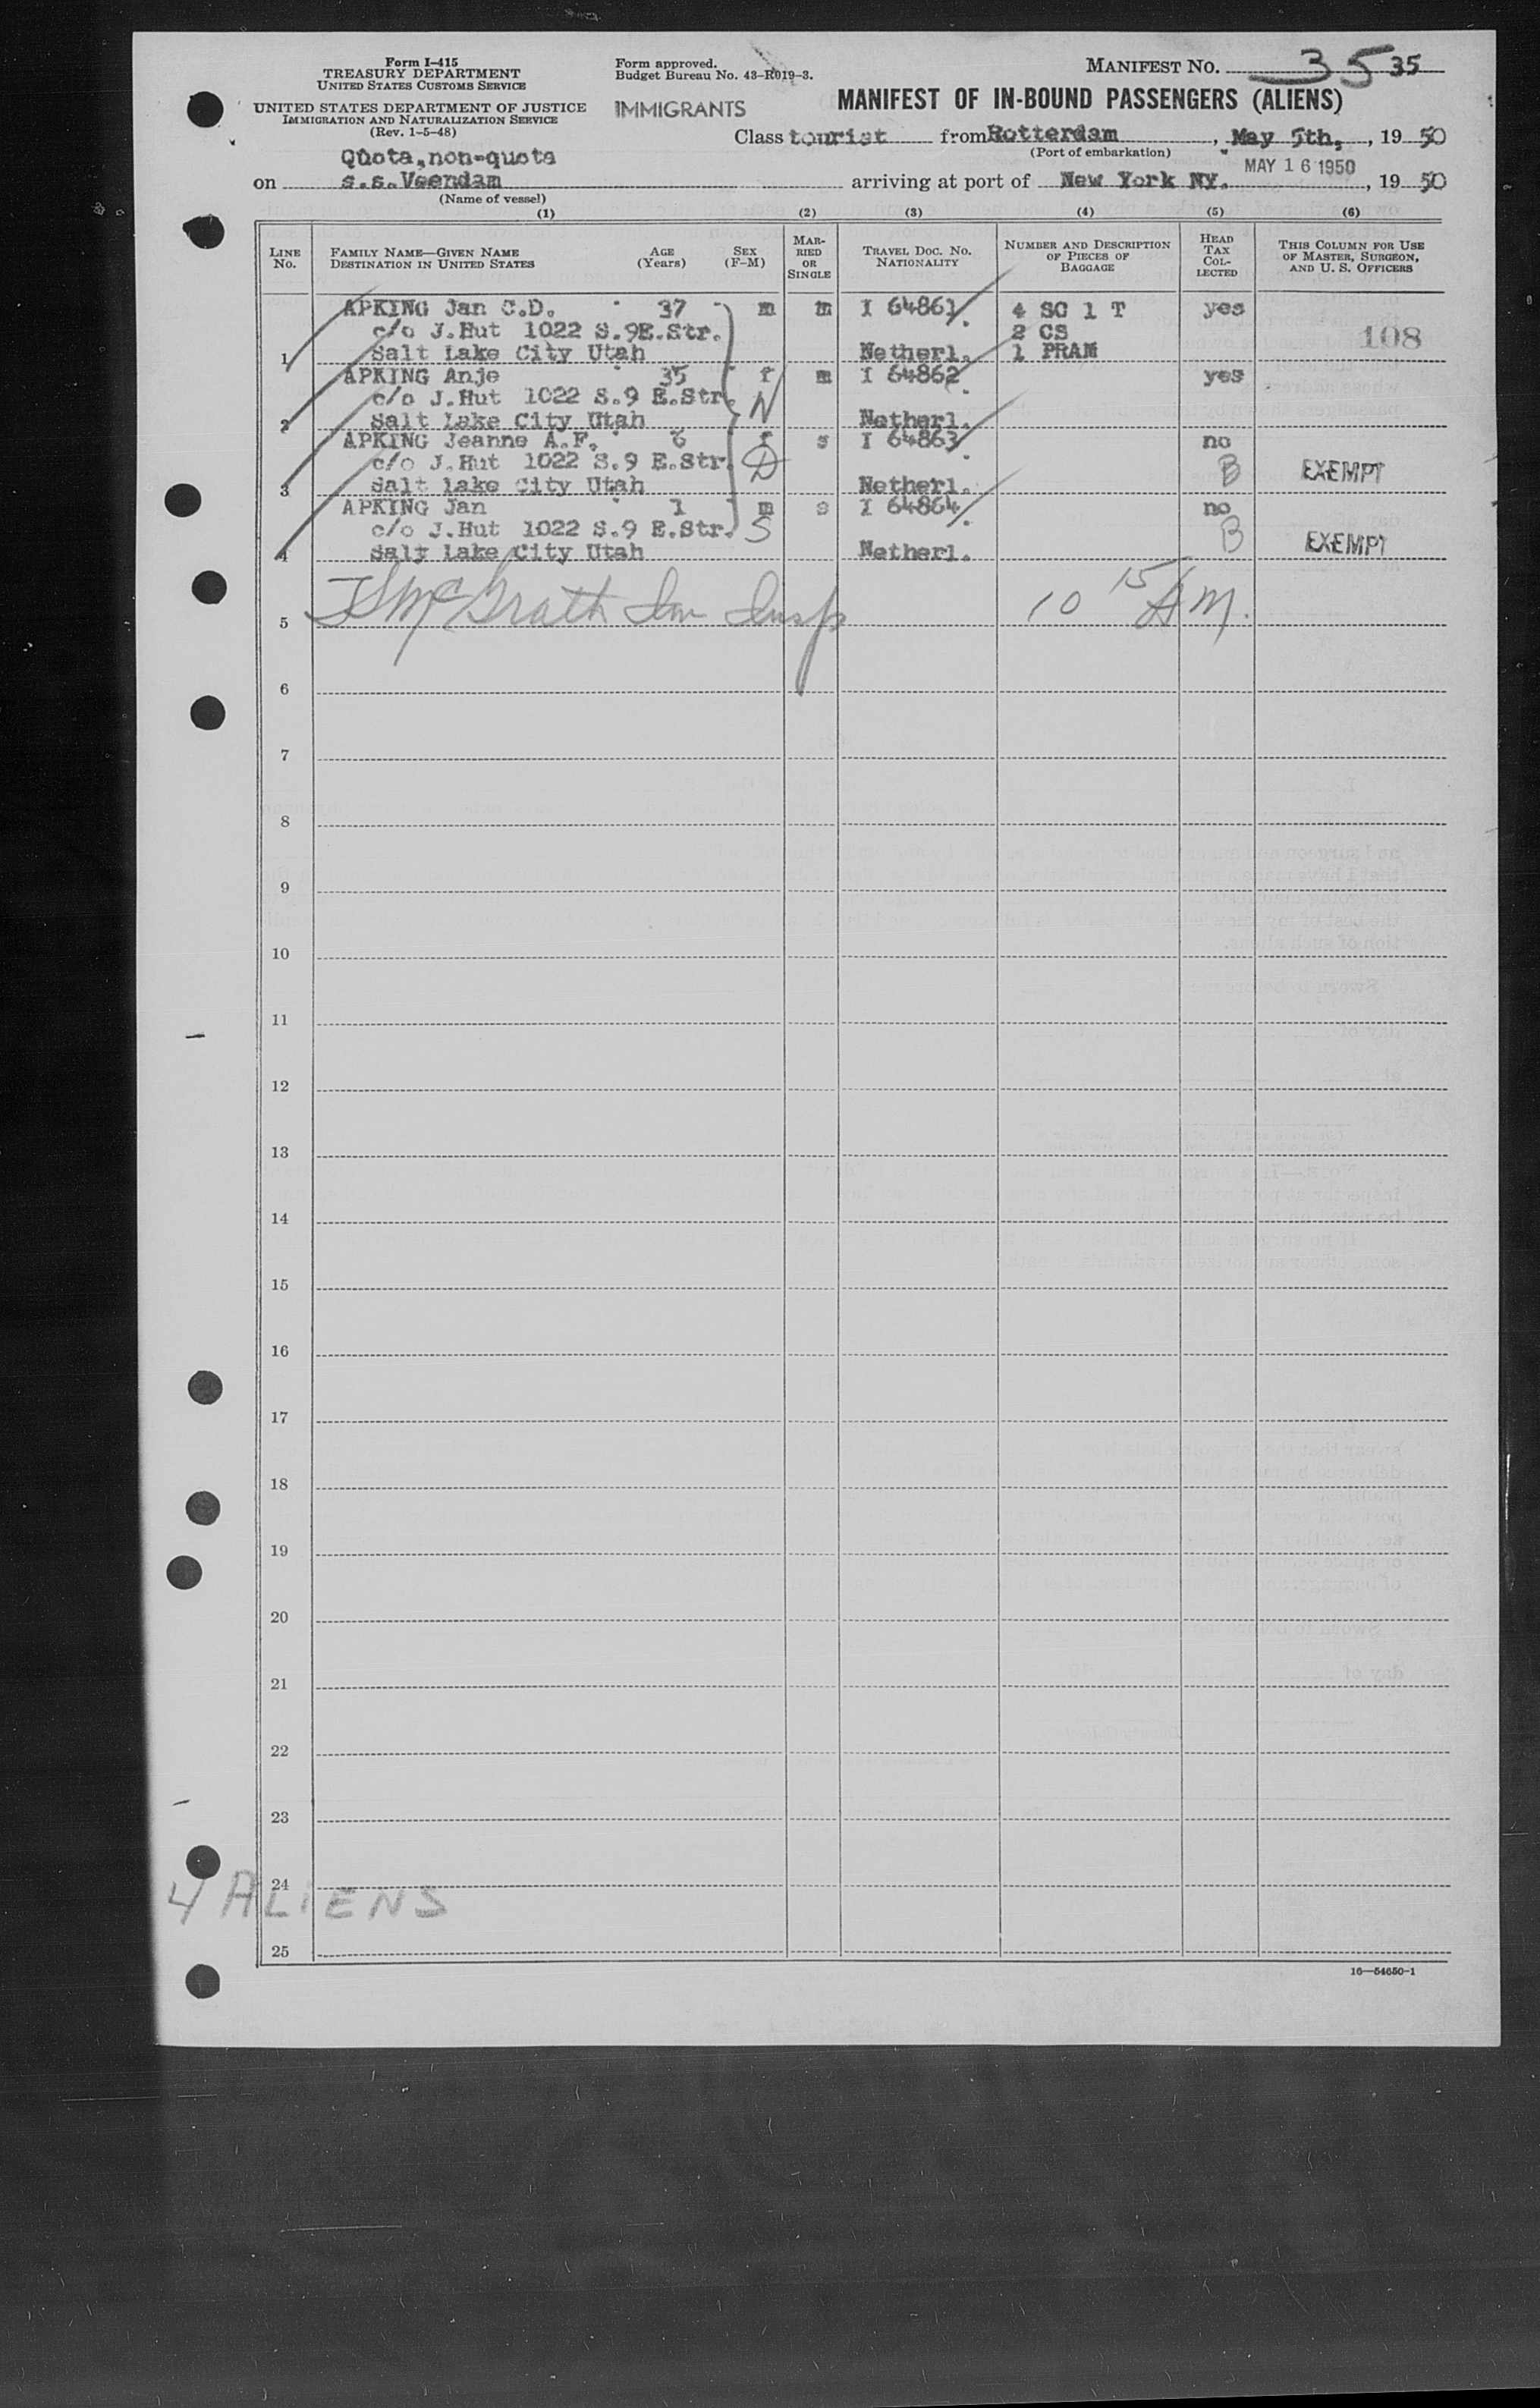 Form I-415
TREASURY DEPARTMENT
UNITED STATES CUSTOMS SERVICE
UNITED STATES DEPARTMENT OF JUSTICE
IMMIGRATION AND NATURALIZATION SERVICE
(Rev. 1-5-48)
Form approved.
Budget Bureau No. 43-R019-3.
IMMIGRANTS
MANIFEST NO. 35 35
MANIFEST OF IN-BOUND PASSENGERS (ALIENS)
Class tourist from Rotterdam, May 5th, , 19 50
(Port of embarkation)
Quota, non-quota
MAY 16 1950
on s.s. Veendam arriving at port of New York NY. , 19 50
(Name of vessel)
(1) (2) (3) (4) (5) (6)
LINE NO. FAMILY NAME—GIVEN NAME DESTINATION IN UNITED STATES AGE (Years) SEX (F-M) MARRIED OR SINGLE TRAVEL DOC. NO. NATIONALITY NUMBER AND DESCRIPTION OF PIECES OF BAGGAGE HEAD TAX COLLECTED THIS COLUMN FOR USE OF MASTER, SURGEON, AND U. S. OFFICERS
APKING Jan C.D. 37 m m I 64861 4 SC 1 T yes
c/o J.Hut 1022 S.9E.Str. 2 CS 108
1 Salt Lake City Utah Netherl. 1 PRAM
APKING Anje 35 f m I 64862 yes
c/o J.Hut 1022 S.9 E.Str. N
2 Salt Lake City Utah Netherl.
APKING Jeanne A.F. 6 f s I 64863 no
c/o J.Hut 1022 S.9 E.Str. D B EXEMPT
3 Salt Lake City Utah Netherl.
APKING Jan 1 m s I 64864 no
c/o J.Hut 1022 S.9 E.Str. S B EXEMPT
4 Salt Lake City Utah Netherl.
5 McGrath Im Insp 10 15 AM.
6
7
8
9
10
11
12
13
14
15
16
17
18
19
20
21
22
23
24
4 ALIENS
25
16—54650-1